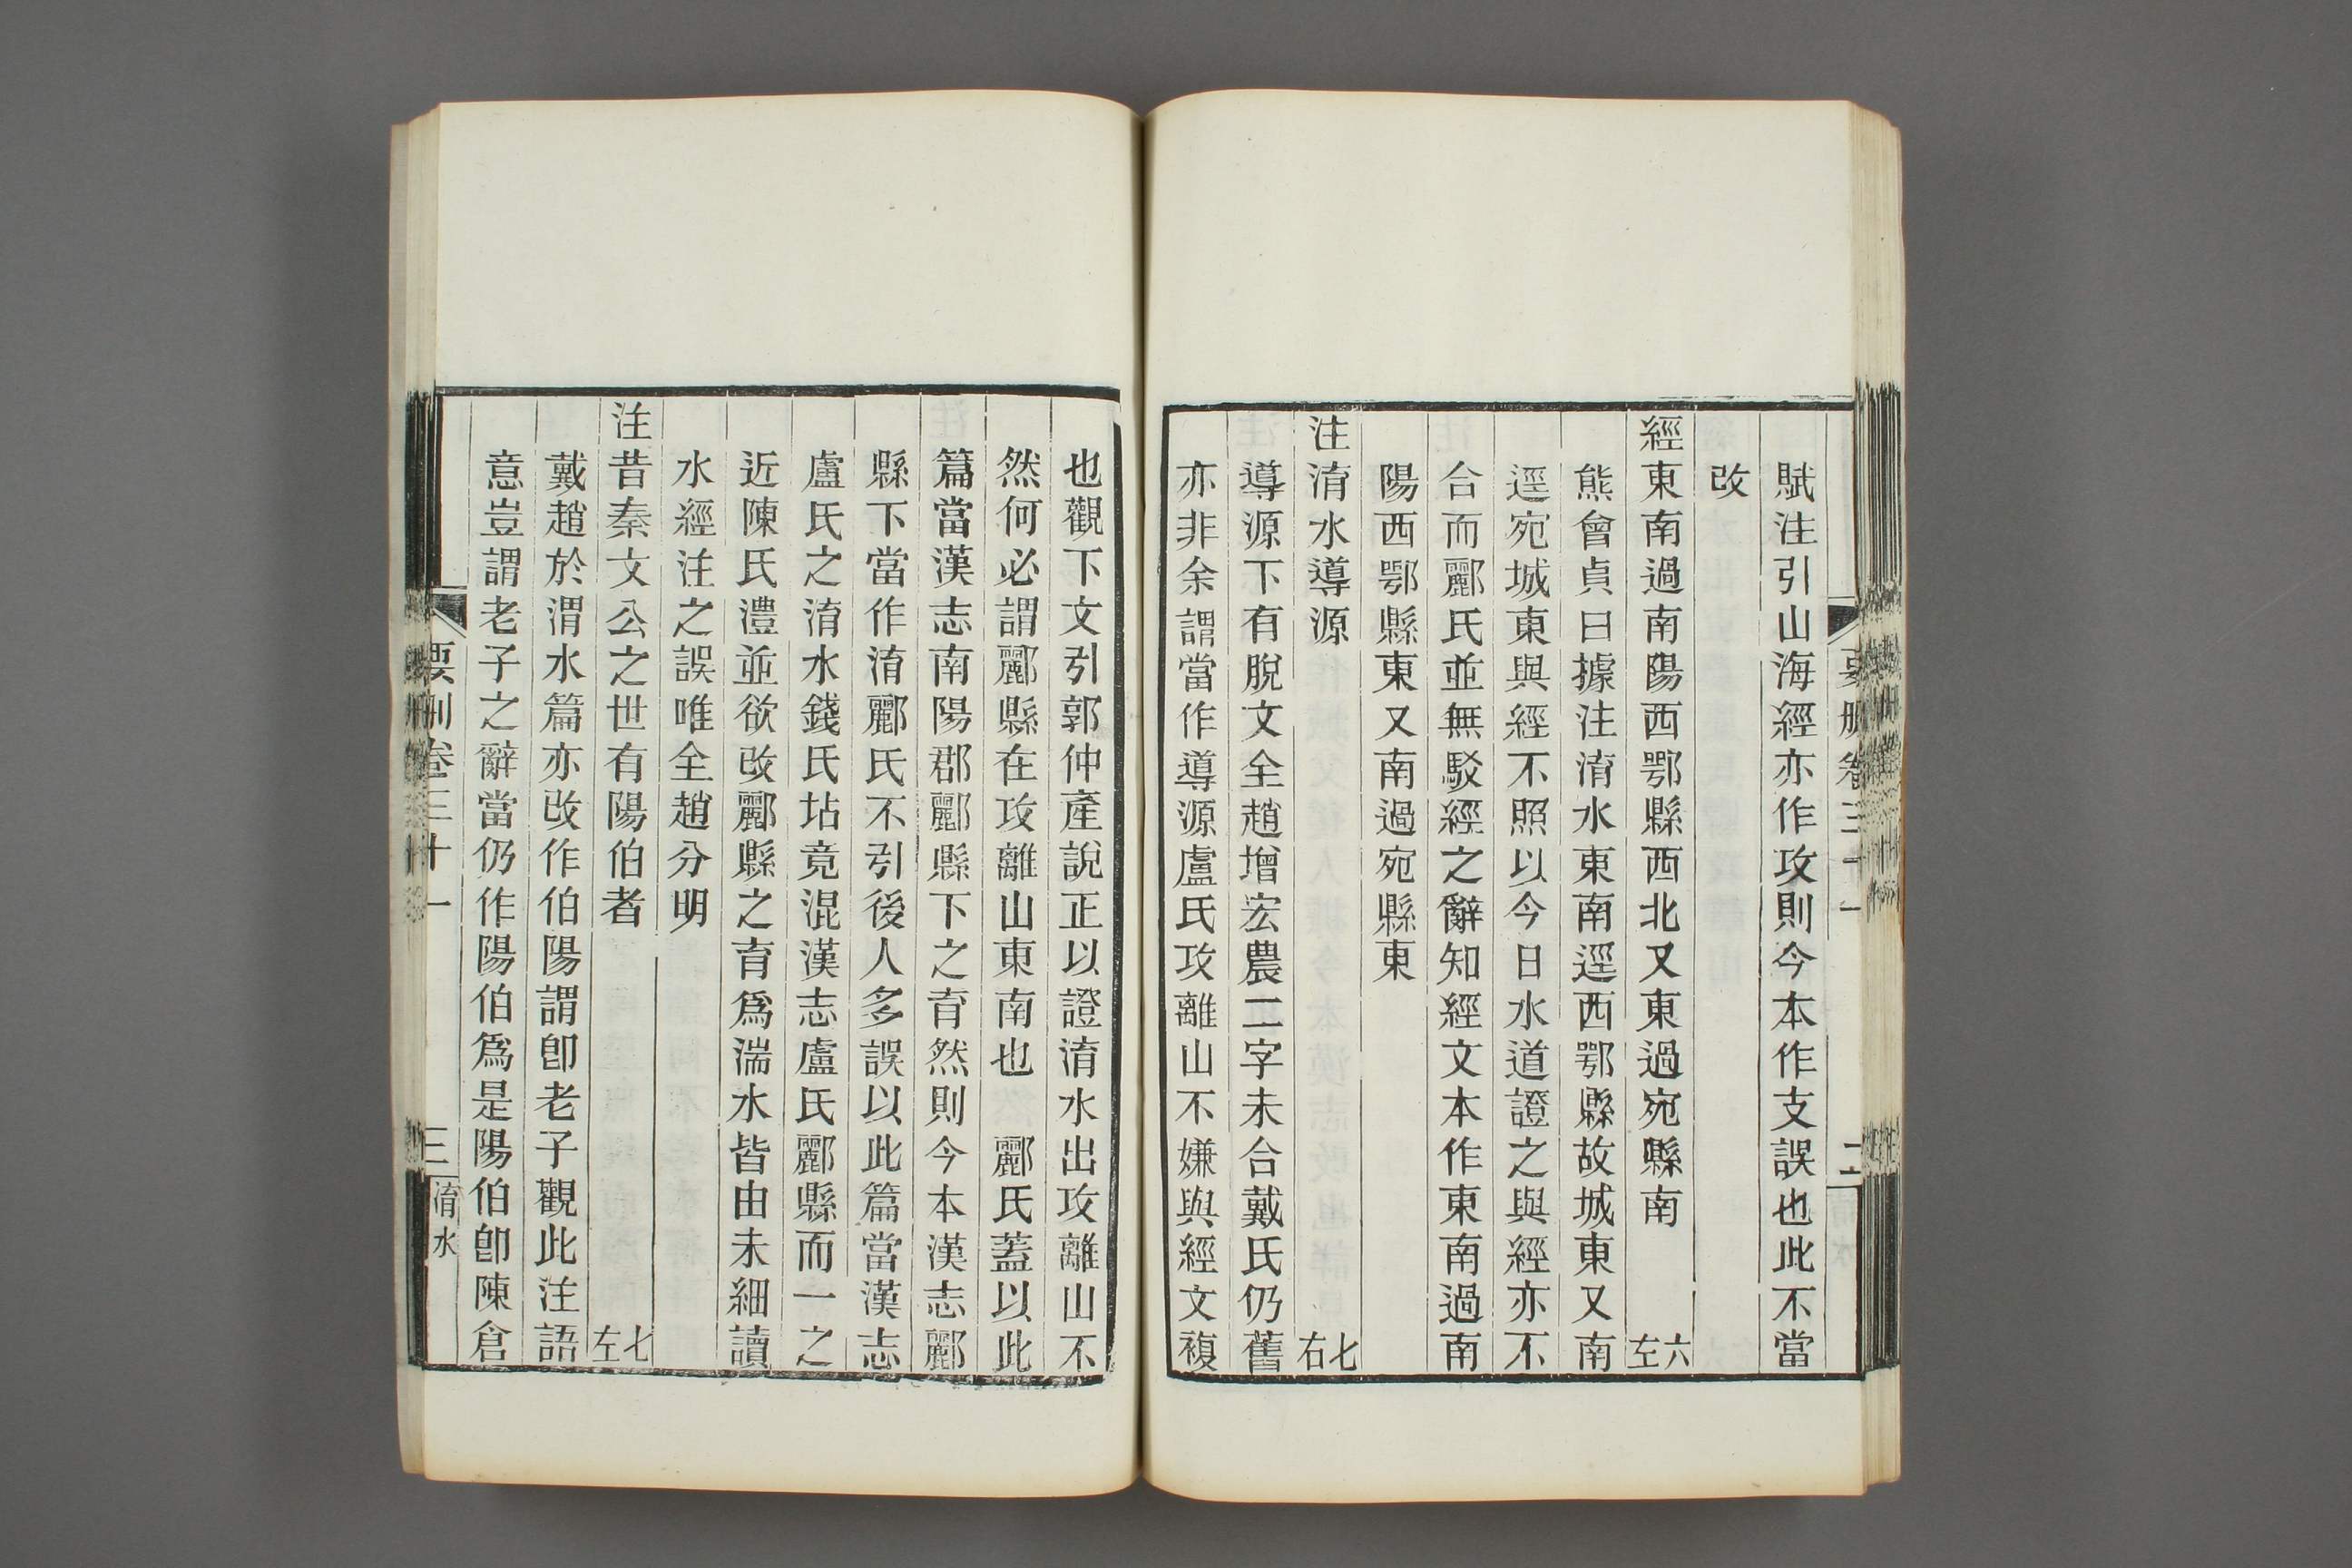 賦注引山海經亦作攻則今本作支誤也此不當
改
經東南過南陽西鄂縣西北又東過宛縣南 六左
熊會貞曰據注淯水東南逕西鄂縣故城東又南
逕宛城東與經不照以今日水道證之與經亦不
合而酈氏並無駁經之辭知經文本作東南過南
陽西鄂縣東又南過宛縣東
注淯水導源 七右
導源下有脫文全趙增宏農二字未合戴氏仍舊
亦非余謂當作導源盧氏攻離山不嫌與經文複
也觀下文引郭仲產說正以證淯水出攻離山不
然何必謂酈縣在攻離山東南也 酈氏蓋以此
篇當漢志南陽郡酈縣下之育然則今本漢志酈
縣下當作淯酈氏不引後人多誤以此篇當漢志
盧氏之淯水錢氏坫竟混漢志盧氏酈縣而一之
近陳氏澧並欲改酈縣之育爲湍水皆由未細讀
水經注之誤唯全趙分明
注昔秦文公之世有陽伯者 七左
戴趙於渭水篇亦改作伯陽謂卽老子觀此注語
意豈謂老子之辭當仍作陽伯爲是陽伯卽陳倉
要刪卷三十一 三 淯水